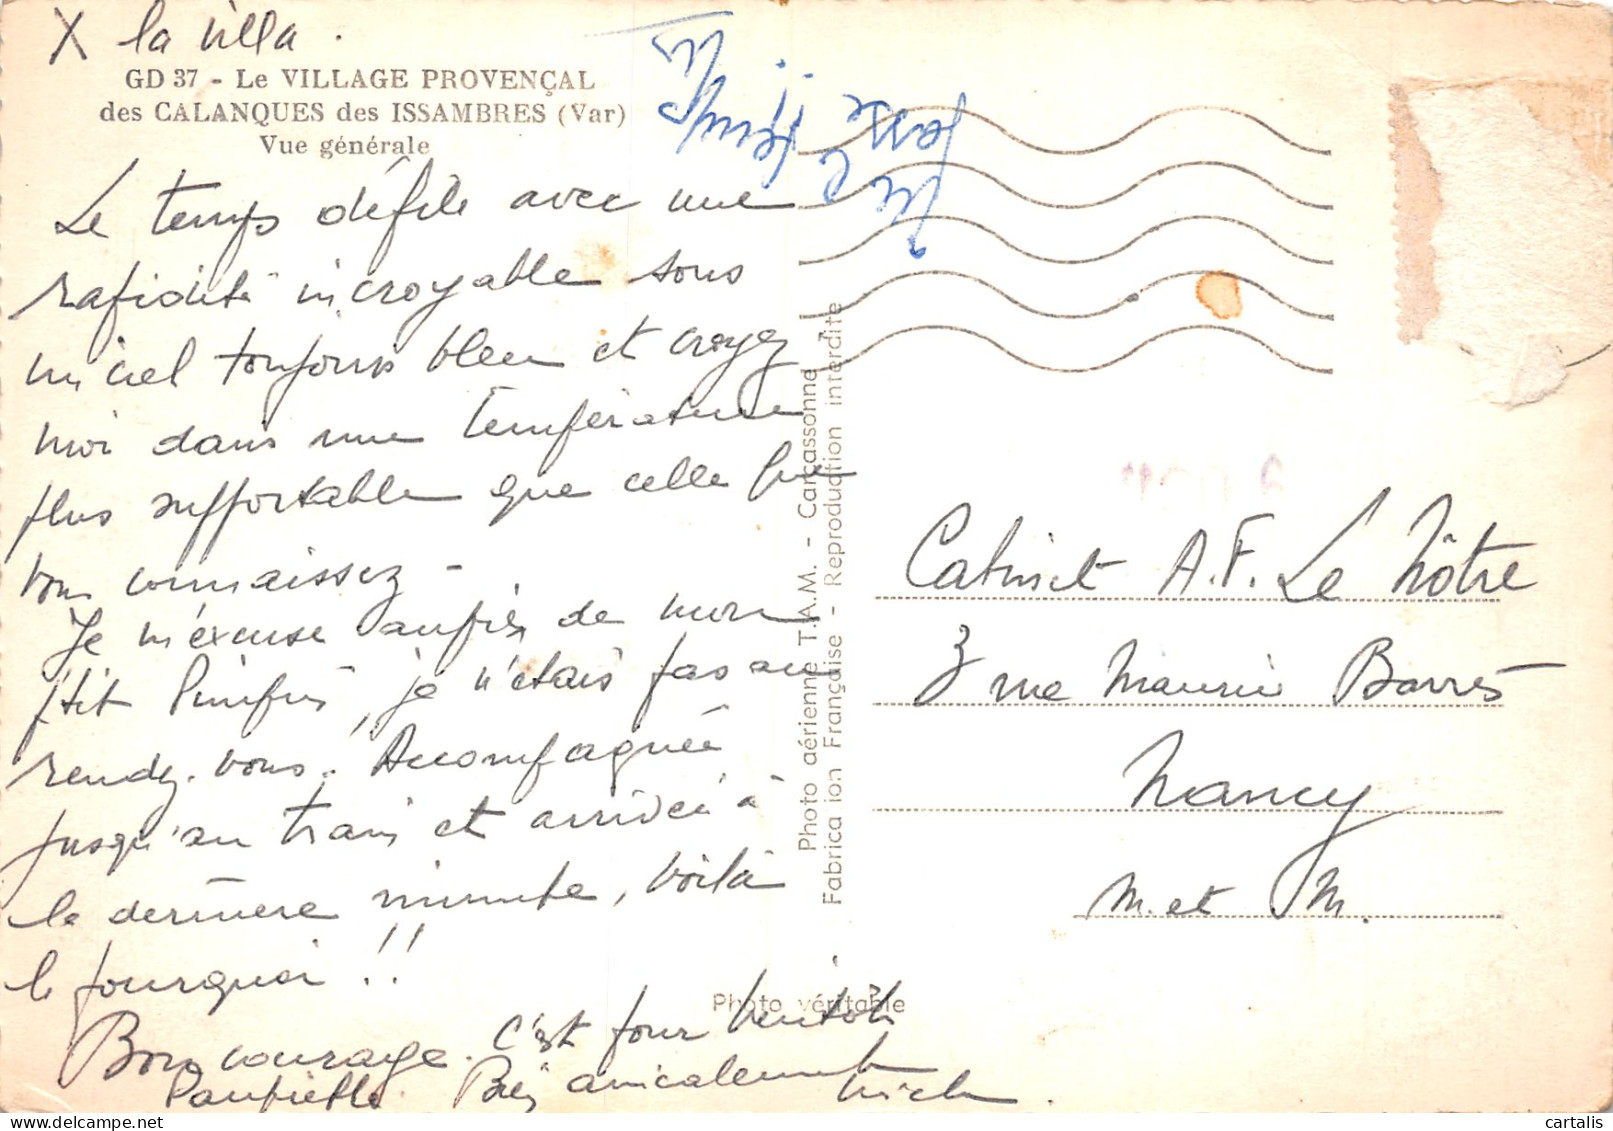 X la villa.
GD 37 - Le VILLAGE PROVENÇAL
des CALANQUES des ISSAMBRES (Var)
Vue générale
Le temps défile avec une
rapidité incroyable sous
un ciel toujours bleu et croyez
moi dans une température
plus supportable que celle que
vous connaissez -
Je m'excuse auprès de mon
p'tit, je n'étais pas au
rendez-vous. Accompagnée
jusqu'au train et arrivée à
la dernière minute, voilà
le pourquoi !!
Bon courage. C'est pour bientôt
Bien amicalement
Photo aérienne T.A.M. - Carcassonne
Fabrica ion Française - Reproduction interdite
Photo véritable
Cabinet A.F. Le Nôtre
3 rue Maurice Barrès
Nancy
M. et M.
cartalis